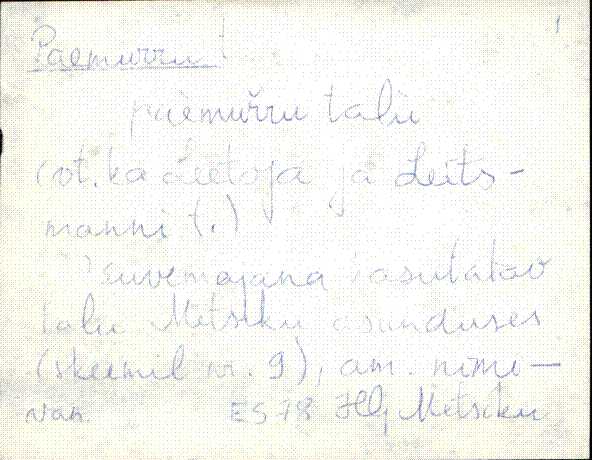 1
Paemurru
paemuřru talu
(vt. ka Leetoja ja Leits-
manni (.)
suvemajana kasutatav
talu Metsiku asunduses
(skeemil nr. 9), am. nimi -
van. ES 78 Hlj Metsiku